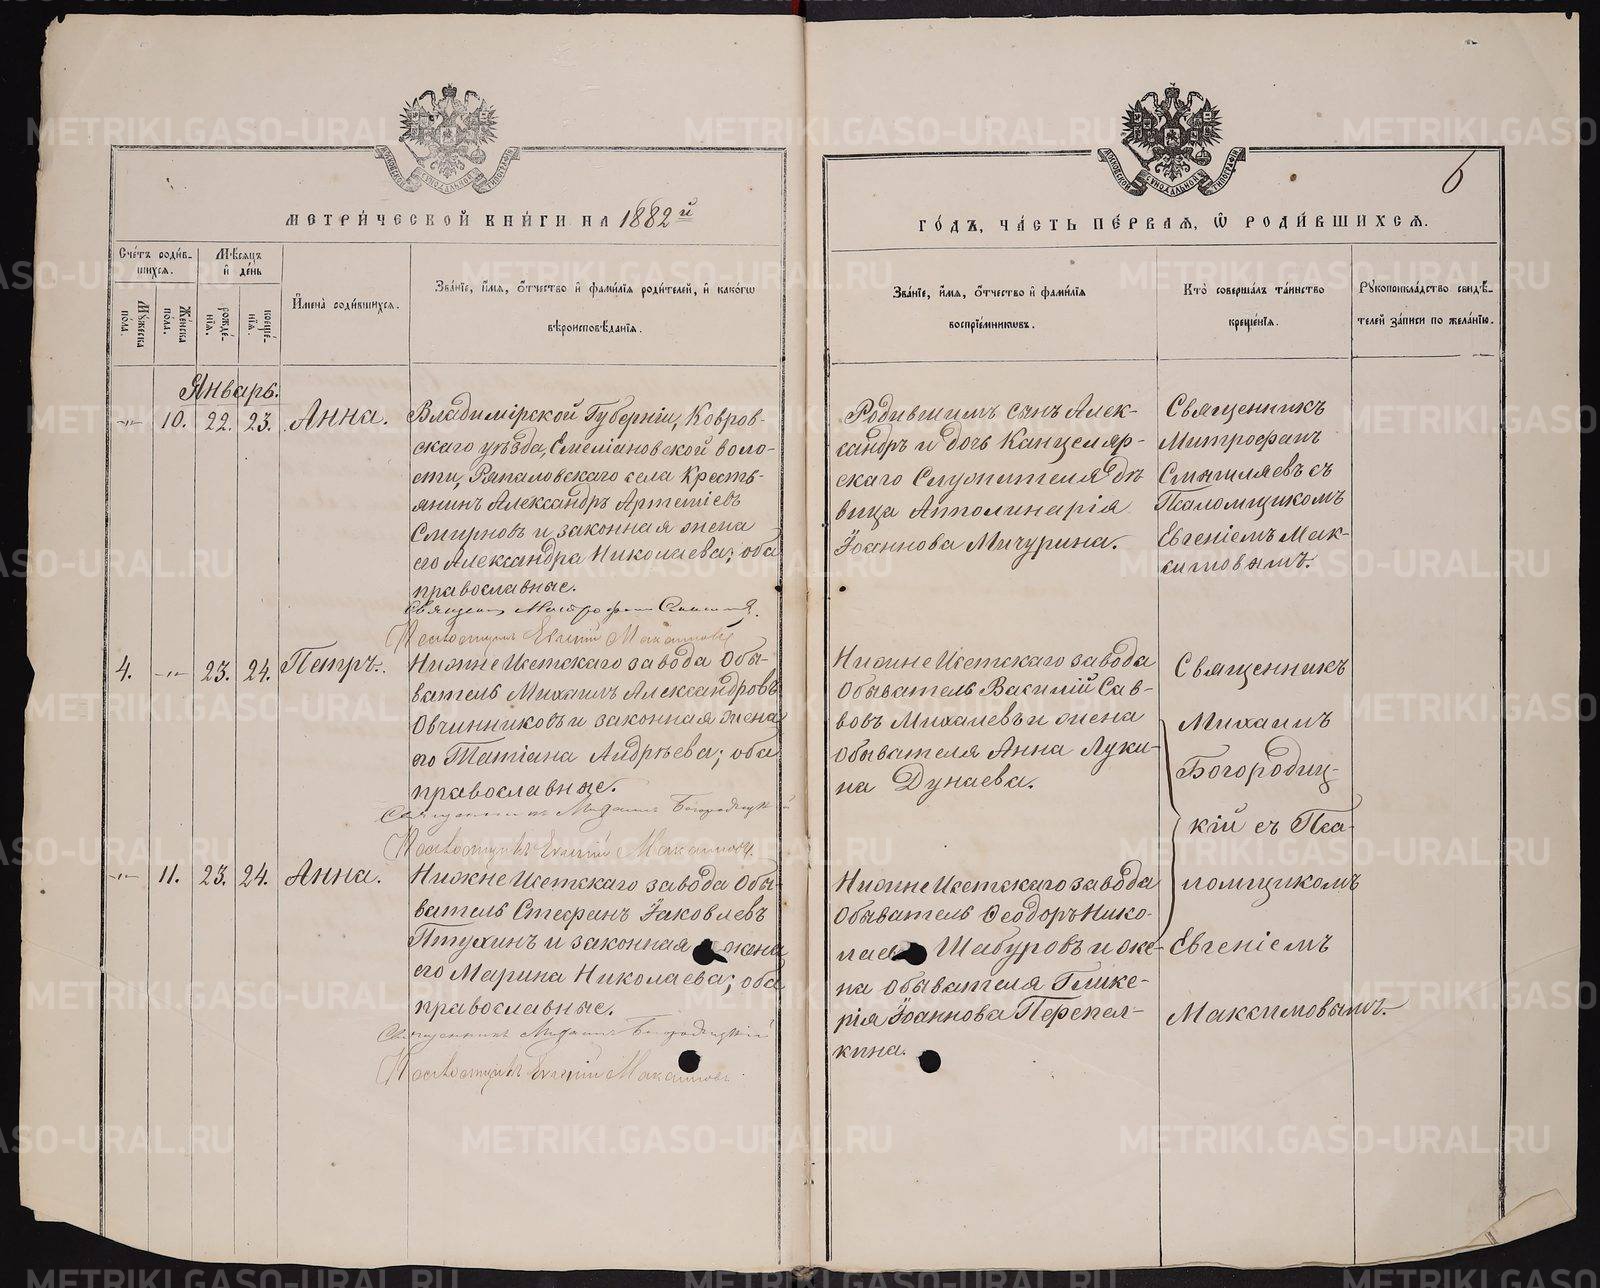 МЕТРИ́ЧЕСКОЙ КНИ́ГИ НА 1882й
ГО́ДЪ, ЧА́СТЬ ПЕ́РВАЯ, Ѡ РОДИ́ВШИХСЯ.
6
Сче́тъ роди́в-
шихся.
Му́жеска по́ла.
Же́нска по́ла.
Мѣ́сяцъ и҆ де́нь
рожде́-
нїя.
креще́-
нїя.
И҆мена̀ роди́вшихся.
Зва́нїе, и҆́мя, ѻ҆́тчество и҆ фами́лїя роди́телей, и҆ како́гѡ
вѣроисповѣ́данїя.
Зва́нїе, и҆́мя, ѻ҆́тчество и҆ фами́лїя
воспрїе́мниковъ.
Кто̀ соверша́лъ та́инство
креще́нїя.
Рꙋкоприкла́дство свидѣ́-
телей за́писи по жела́нїю.
Январь.
-"- 10. 22. 23. Анна.
Владимірской Губерніи, Ковров-
скаго уѣзда, Емельяновской воло-
сти, села Кресть-
янинъ Александръ Артеміевъ
Смирновъ и законная жена
его Александра Николаева; оба
православные.
Священ. Митрофанъ
Псаломщикъ Евгеній Максимовъ
Родившимъ сынъ Алек-
сандръ и дочь Канцеляр-
скаго Служителя Дѣ-
вица Апполинарія
Іоаннова Мичурина.
Священникъ
Митрофанъ
съ
Псаломщикомъ
Евгеніемъ Мак-
симовымъ.
4. -"- 23. 24. Петръ.
Нижне Исетскаго завода Обы-
ватель Михаилъ Александровъ
Овчинниковъ и законная жена
его Татіана Андрѣева; оба
православные.
Священникъ Михаилъ Богородицкій
Псаломщикъ Евгеній Максимовъ.
Нижне Исетскаго завода
Обыватель Василій Сав-
вовъ Михалевъ и жена
обывателя Анна Луки-
на Дунаева.
Священникъ
Михаилъ
Богородиц-
кій съ Пса-
ломщикомъ
Евгеніемъ
Максимовымъ.
-"- 11. 23. 24. Анна.
Нижне Исетскаго завода Обы-
ватель Стефанъ Іаковлевъ
Птухинъ и законная жена
его Марина Николаева; оба
православные.
Священникъ Михаилъ Богородицкій
Псаломщикъ Евгеній Максимовъ.
Нижне Исетскаго завода
Обыватель Ѳеодоръ Нико-
лаев Шабуровъ и же-
на обывателя Глике-
рія Іоаннова Перепел-
кина.
METRIKI.GASO-URAL.RU